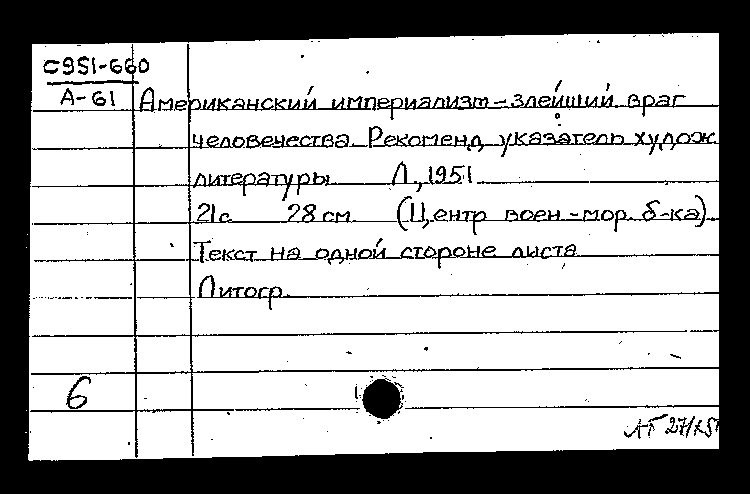 С951-660
А-61 Американский империализм - злейший враг
человечества. Рекоменд. указатель худож.
литературы Л., 1951.
21с. 28 см. (Центр. воен.-мор. б-ка).
Текст на одной стороне листа
Литогр.
6